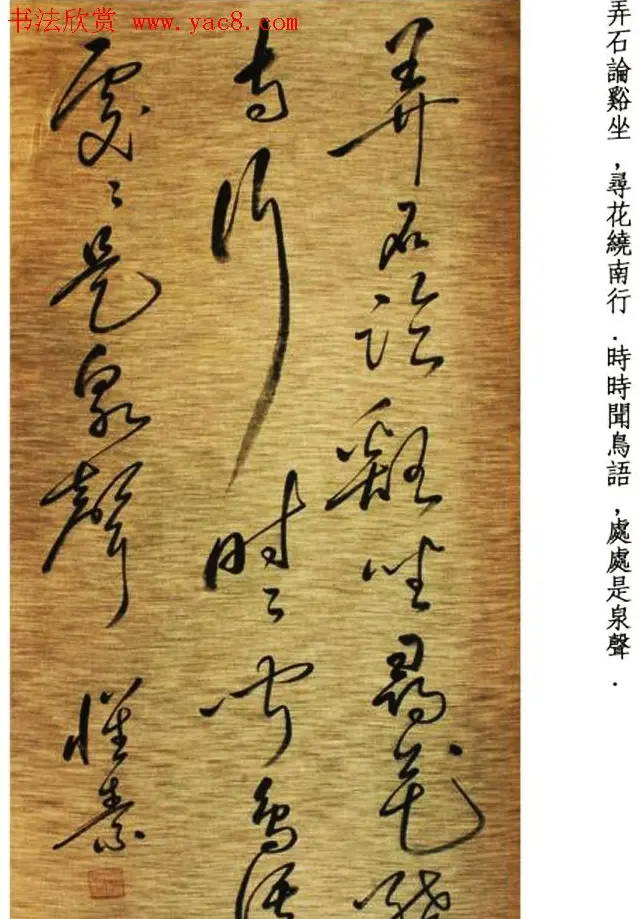 书法欣赏 www.yac8.com
弄石論谿坐,尋花繞南行.時時聞鳥語,處處是泉聲.
弄石論谿坐尋花繞
南行時〻聞鳥語
處〻是泉聲 懷素